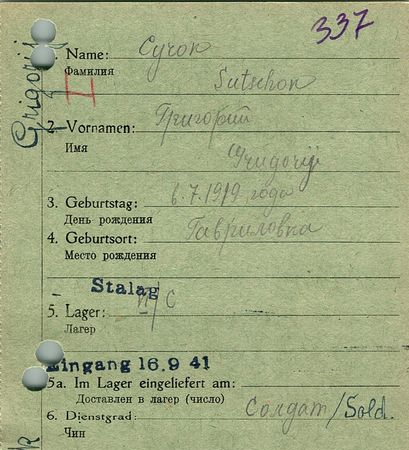 337
Grigorij
1. Name: Сучок
Фамилия
Sutschok
2. Vornamen: Григорий
Имя
Grigorij
3. Geburtstag: 6.7.1919 года
День рождения
4. Geburtsort: Гавриловка
Место рождения
Stalag
5. Lager: II/C
Лагер
Eingang 16.9 41
5a. Im Lager eingeliefert am:
Доставлен в лагер (число)
6. Dienstgrad: Солдат/Sold.
Чин